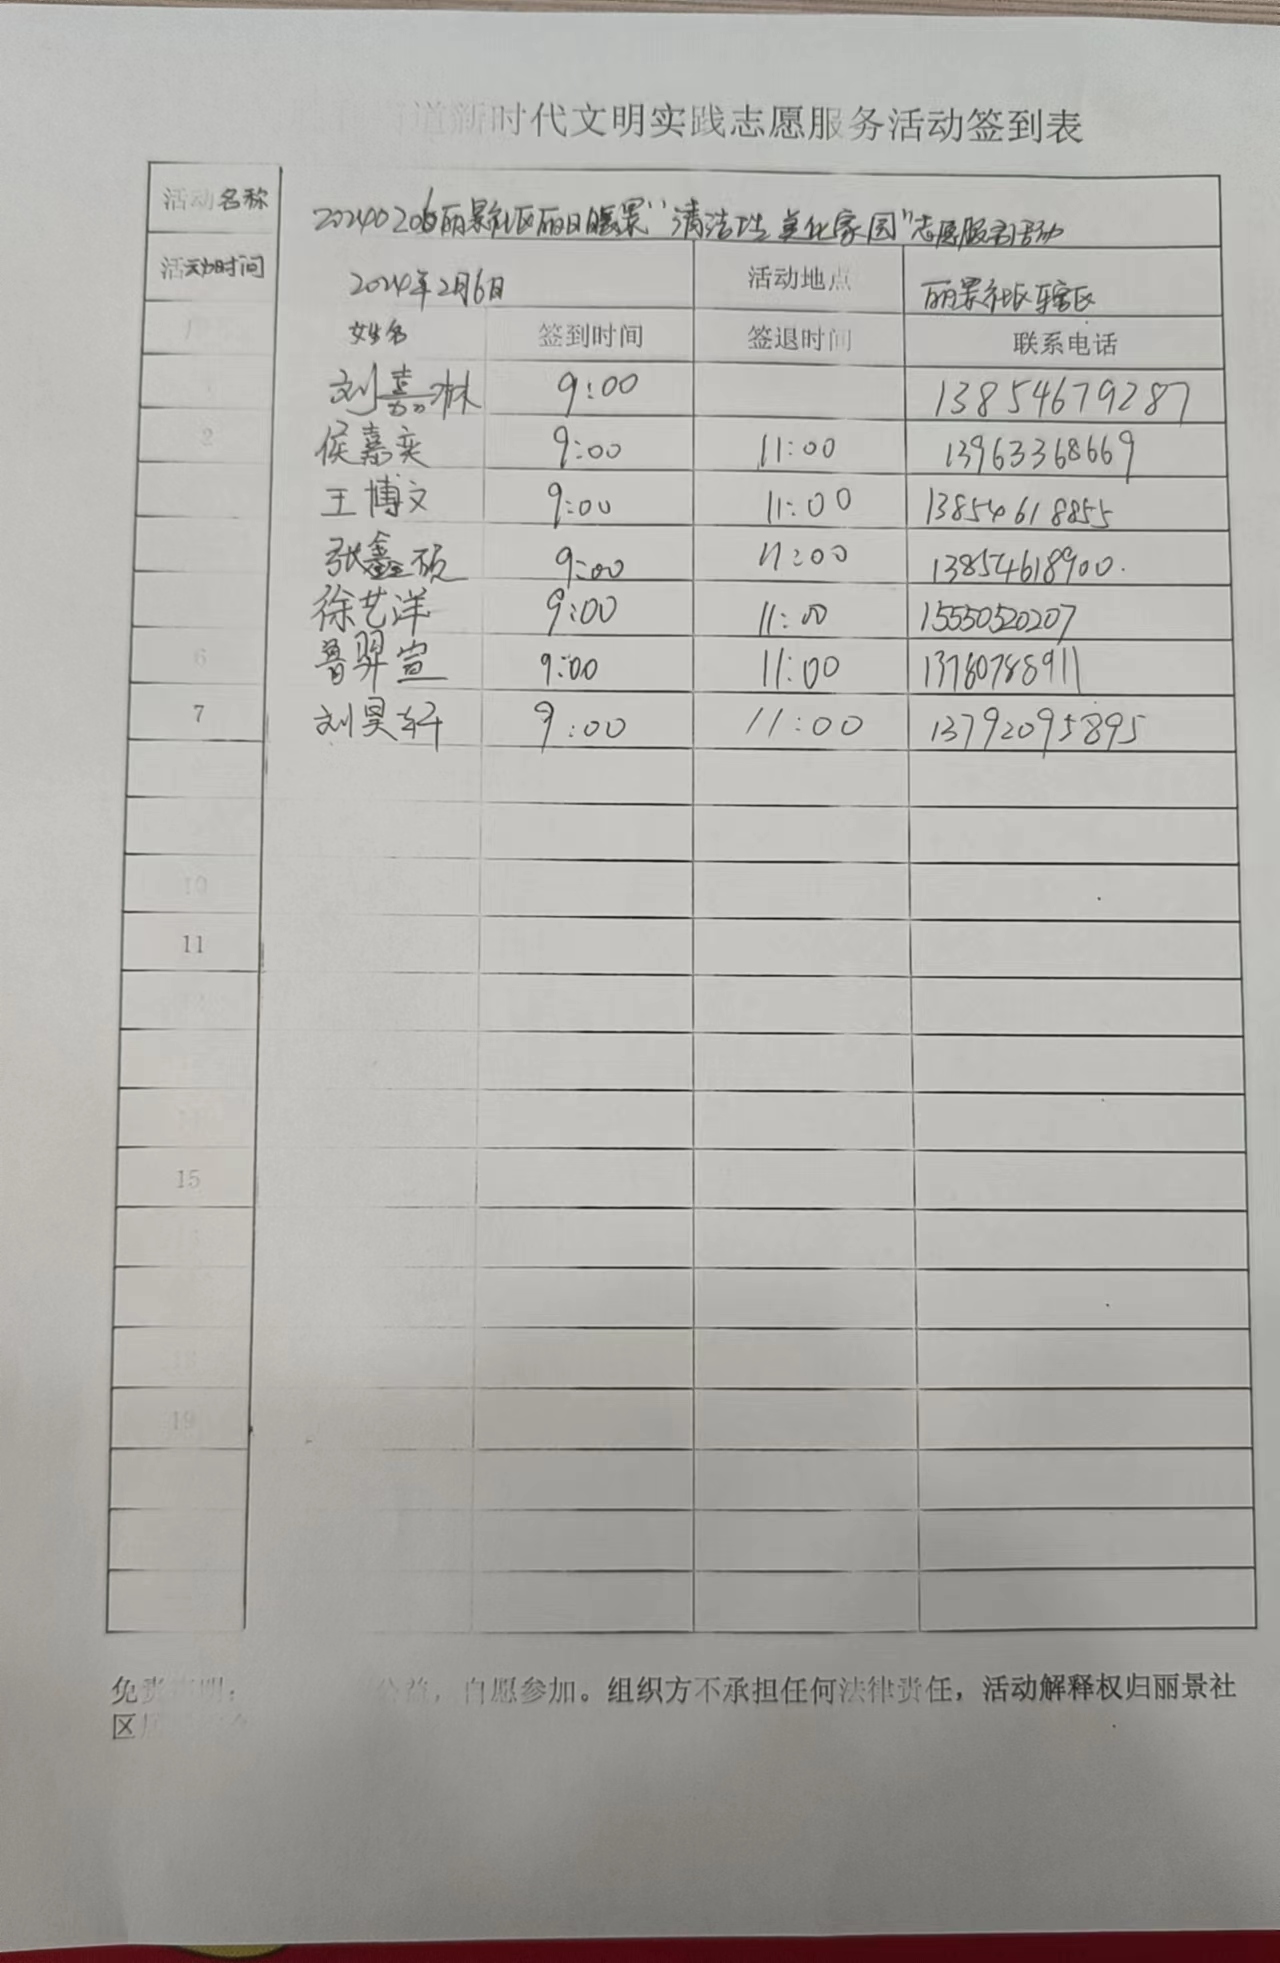 道新时代文明实践志愿服务活动签到表
活动名称 20240206丽景社区丽日暖景“清洁 美化家园”志愿服务活动
活动时间 2024年2月6日 活动地点 丽景社区辖区
姓名 签到时间 签退时间 联系电话
刘嘉淋 9:00 13854679287
2 侯嘉奕 9:00 11:00 13963368669
王博文 9:00 11:00 13854618855
张鑫硕 9:00 11:00 13854618900.
徐艺洋 9:00 11:00 15550520207
6 鲁羿萱 9:00 11:00 13780788911
7 刘昊轩 9:00 11:00 13792095895
10
11
14
15
18
19
免责声明: 公益，自愿参加。组织方不承担任何法律责任，活动解释权归丽景社
区